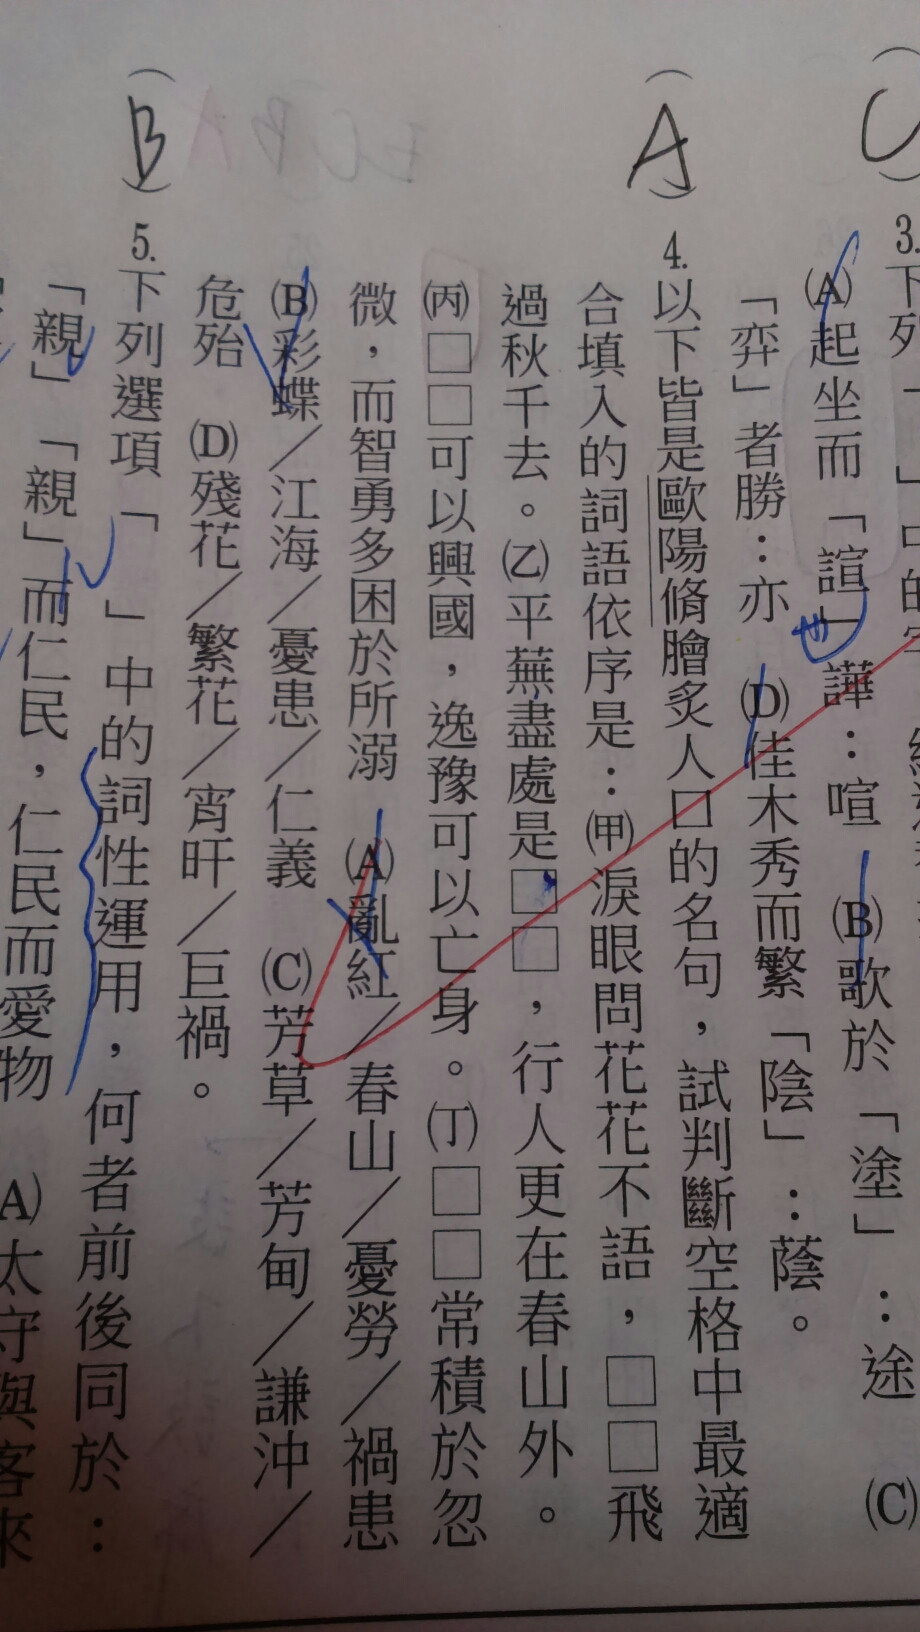 C
3.下列「
(A)起坐而「諠」譁：喧　(B)歌於「塗」：途　(C)
「弈」者勝：亦　(D)佳木秀而繁「陰」：蔭。
A
4.以下皆是歐陽脩膾炙人口的名句，試判斷空格中最適
合填入的詞語依序是：㈙淚眼問花花不語，□□飛
過秋千去。㈚平蕪盡處是□□，行人更在春山外。
㈛□□可以興國，逸豫可以亡身。㈜□□常積於忽
微，而智勇多困於所溺　(A)亂紅／春山／憂勞／禍患
(B)彩蝶／江海／憂患／仁義　(C)芳草／芳甸／謙沖／
危殆　(D)殘花／繁花／宵旰／巨禍。
B
5.下列選項「　」中的詞性運用，何者前後同於：
「親」「親」而仁民，仁民而愛物　(A)太守與客來